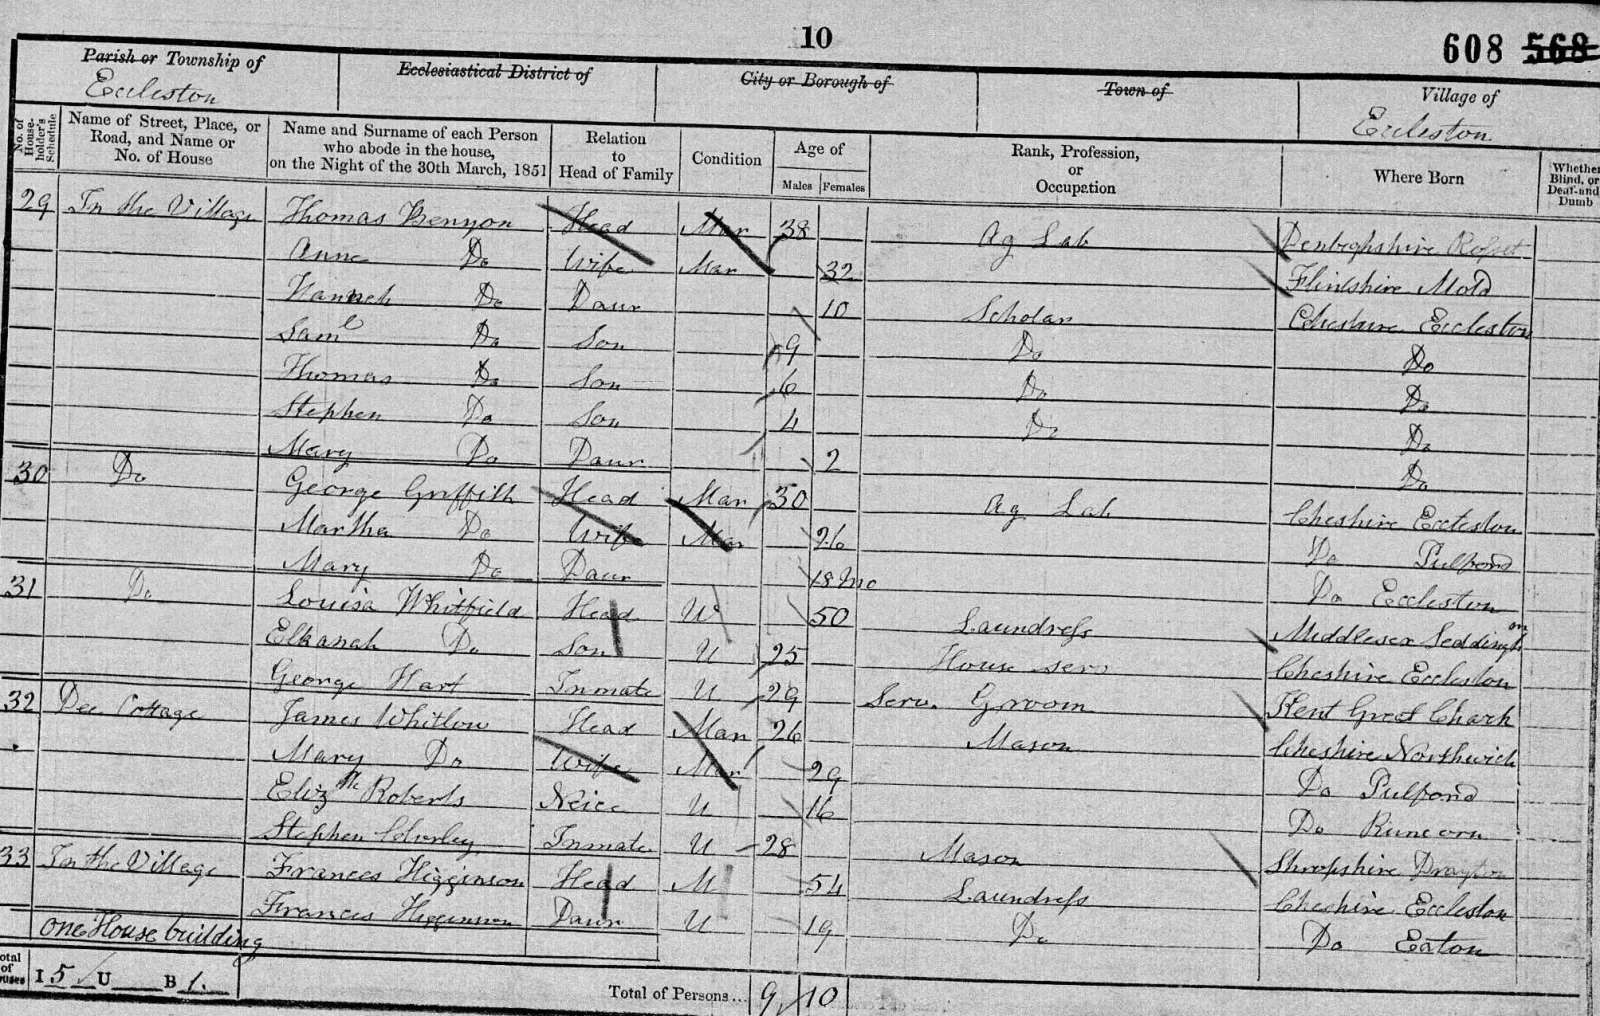 10
608 568
Parish or Township of
Eccleston
Ecclesiastical District of
City or Borough of
Town of
Village of
Eccleston
No. of House-holder's Schedule
Name of Street, Place, or Road, and Name or No. of House
Name and Surname of each Person who abode in the house, on the Night of the 30th March, 1851
Relation to Head of Family
Condition
Age of
Males Females
Rank, Profession, or Occupation
Where Born
Whether Blind, or Deaf-and-Dumb
29 In the Village Thomas Benyon Head Mar 38 Ag Lab Denbighshire
Anne Do Wife Mar 32 Flintshire Mold
Hannah Do Daur 10 Scholar Cheshire Eccleston
Saml Do Son 9 Do Do
Thomas Do Son 6 Do Do
Stephen Do Son 4 Do Do
Mary Do Daur 2 Do
30 Do George Griffith Head Mar 30 Ag Lab Cheshire Eccleston
Martha Do Wife Mar 26 Do Pulford
Mary Do Daur 18 Mo Do Eccleston
31 Do Louisa Whitfield Head W 50 Laundress Middlesex
Elkanah Do Son U 25 House serv Cheshire Eccleston
George Hart Inmate U 29 Serv. Groom Kent Great Charh
32 Dee Cottage James Whitlow Head Mar 26 Mason Cheshire Northwich
Mary Do Wife Mar 29 Do Pulford
Elizth Roberts Neice U 16 Do Runcorn
Stephen Inmate U 28 Mason Shropshire Drayton
33 In the Village Frances Higginson Head M 54 Laundress Cheshire Eccleston
Frances Higginson Daur U 19 Do Do Eaton
one House building
Total of Houses I 5 U B 1.
Total of Persons... 9 10